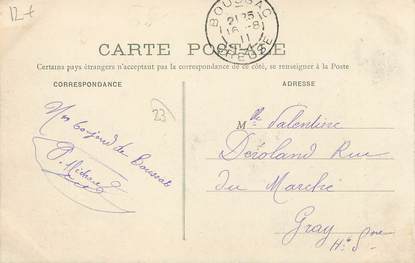 12+
BOUSSAC
21 25
16 -8
11
CREUSE
CARTE POSTALE
Certains pays étrangers n'acceptant pas la correspondance de ce côté, se renseigner à la Poste
CORRESPONDANCE
ADRESSE
23
Un bonjour de Boussac
Mlle Valentine
Rue
du Marché
Gray
Hte Sne